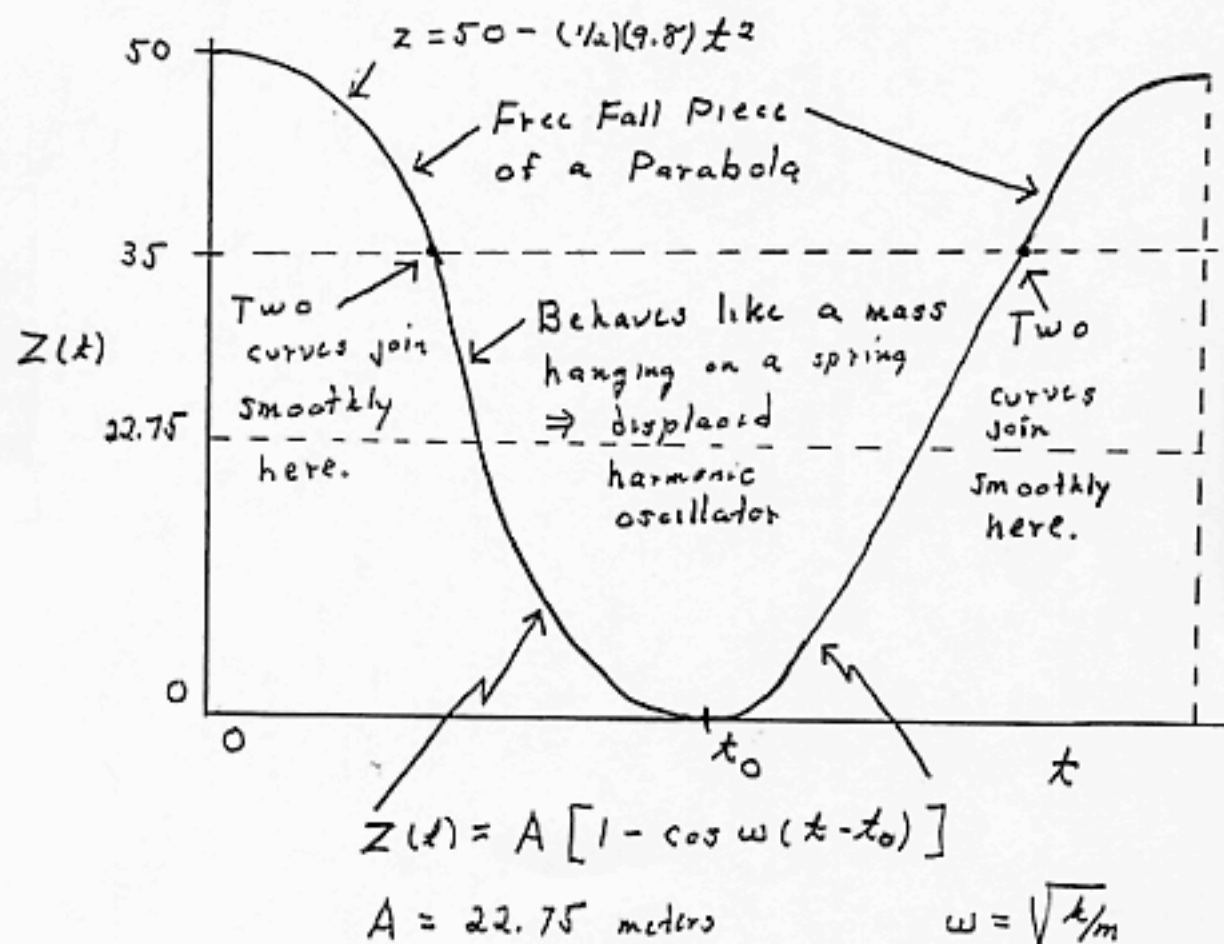 z = 50 - (1/2)(9.8) t²
50
Free Fall Piece
of a Parabola
35
Two
curves join
smoothly
here.
Behaves like a mass
hanging on a spring
⇒ displaced
harmonic
oscillator
Two
curves
join
smoothly
here.
Z(t)
22.75
0
0
t₀
t
Z(t) = A [1 - cos ω(t - t₀)]
A = 22.75 meters
ω = √k/m